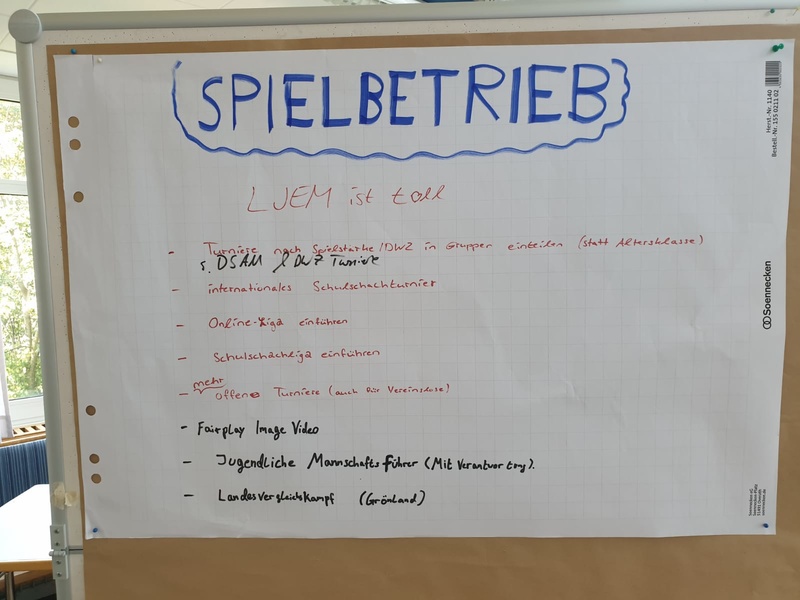 SPIELBETRIEB
LJEM ist toll
- Turniere nach Spielstärke/DWZ in Gruppen einteilen (statt Altersklasse)
s. DSAM & DWZ Turniere
- internationales Schulschachturnier
- Online-Liga einführen
- Schulschachliga einführen
mehr
- offene Turniere (auch für Vereinslose)
- Fairplay Image Video
- Jugendliche Mannschaftsführer (Mit Verantwortung).
- Landesvergleichskampf (Grönland)
Herst.-Nr. 1140
Bestell.-Nr. 155 0211 02
Soennecken